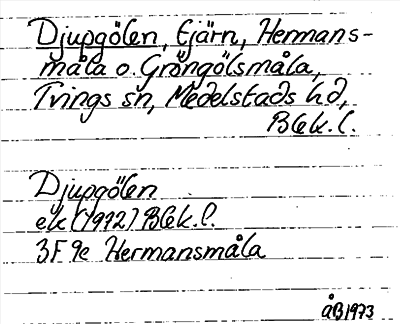 Djupgölen, tjärn, Hermans-
måla o. Gröngölsmåla,
Tvings sn, Medelstads hd,
Blek. l.
Djupgölen
ek (1972) Blek. l.
3F 9e Hermansmåla
ÅB 1973